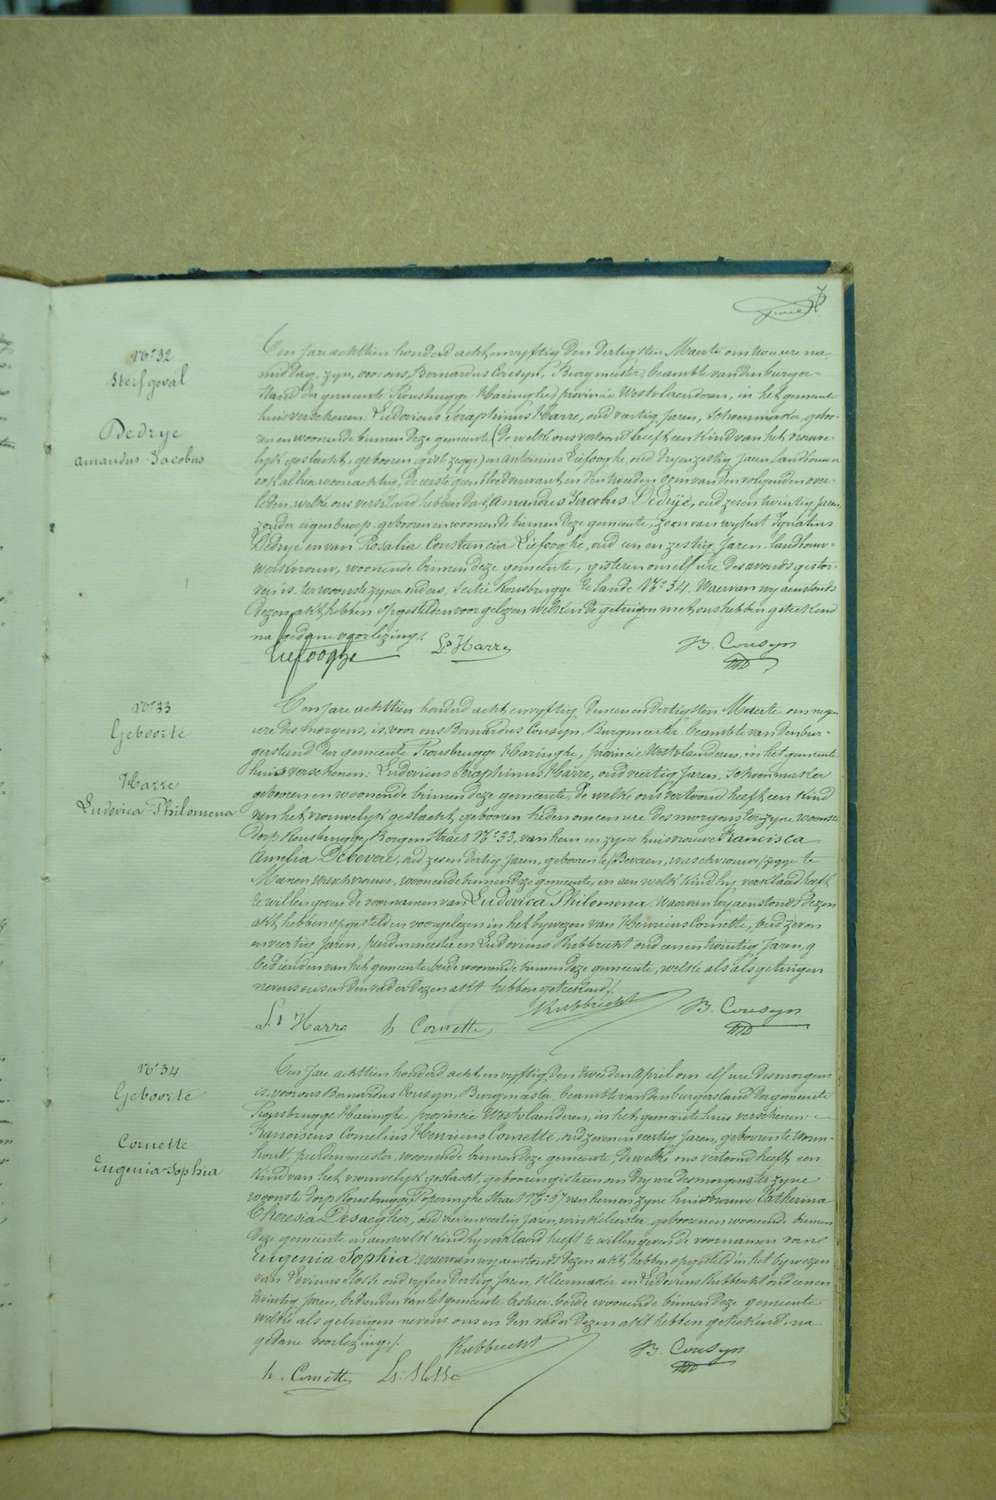 7
N° 32
Sterfgeval
Dedrye
Amandus Jacobus
Ten jare achttien honderd acht en vyftig den dertigsten Maerte om twee ure na-
middag, zyn, voor ons, Bernardus Cousyn, Burgmeester, beambte van den burger-
stand der gemeente Rousbrugge Haringhe, provincie Westvlaenderen, in het gemeente
huis verschenen: Ludovicus Seraphinus Harre, oud veertig Jaren, Schoenmaker, gebo-
ren en woonende binnen deze gemeente (de welke ons vertoond heeft een kind van het vrouwe-
lyk geslacht, gebooren en Antonius Liefooghe, oud dry en zestig Jaren, landbouwer
ook alhier woonachtig, de eerste geen bloedverwant en den tweeden oom van den volgenden over-
leden, welke ons verklaerd hebben dat, Amandus Jacobus Dedrye, oud zes en twintig Jaren,
zonder eigen beroep, gebooren en woonende binnen deze gemeente, zoon van wylent Ignatius
Dedrye en van Rosalia Constancia Liefooghe, oud een en zestig Jaren, landbouw-
werkvrouw, woonende binnen deze gemeente, gisteren om elf ure des avonds gestor-
ven is, ter woonste zyner ouders, sectie Rousbrugge te lande N° 34. Waervan wy aenstonds
dezen akt hebben opgesteld en voorgelezen welken de getuigen met ons hebben geteekend
na gedane voorlezing.
Liefooghe Ls Harre B. Cousyn
N° 33
Geboorte
Harre
Ludovica Philomena
Ten jare achttien honderd acht en vyftig, den een en dertigsten Maerte om negen
ure des morgens, is, voor ons Bernardus Cousyn, Burgmeester, beambte van den bur-
gerstand der gemeente Rousbrugge Haringhe, provincie Westvlaenderen, in het gemeente
huis verschenen: Ludovicus Seraphinus Harre, oud veertig Jaren, Schoenmaker
gebooren en woonende binnen deze gemeente, de welke ons vertoond heeft een kind
van het vrouwelyk geslacht, gebooren heden om een ure des morgens ter zyne woonste
dorp Rousbrugge, Bergen straet N° 33, van hem en zyne huisvrouw Francisca
Amelia Debevere, oud zes en dertig Jaren, gebooren te Beveren,
woonende binnen deze gemeente, en aen welk kind hy verklaerd heeft
te willen geven de voornamen van Ludovica Philomena. Waervan wy aenstonds dezen
akt hebben opgesteld en voorgelezen in het bywezen van Henricus Cornette, oud zeven
en veertig Jaren, veldmeester en Ludovicus Rubbrecht oud een en twintig Jaren,
bedienden van het gemeente beide woonende binnen deze gemeente, welke als getuigen
nevens ons en den vader dezen akt hebben geteekend.
Ls Harre h. Cornette Rubbrecht B. Cousyn
N° 34
Geboorte
Cornette
Eugenia-Sophia
Ten Jare achttien honderd acht en vyftig den tweeden April om elf ure des morgens
is, voor ons Bernardus Cousyn, Burgmeester, beambte van den burgerstand der gemeente
Rousbrugge Haringhe, provincie Westvlaenderen, in het gemeente huis verschenen:
Franciscus Cornelius Henricus Cornette, oud zeven en veertig Jaren, gebooren te
veldmeester, woonende binnen deze gemeente, de welke ons vertoond heeft een
kind van het vrouwelyk geslacht, gebooren gisteren om dry ure des morgens te zyne
woonste dorp Rousbrugge, Poperinghe straet N° 8, van hem en zyne huisvrouw Catherina
Theresia Desaegher, oud vier en veertig Jaren, winkelierster, gebooren en woonende binnen
deze gemeente en aen welk kind hy verklaerd heeft te willen geven de voornamen van
Eugenia Sophia. Waervan wy aenstonds dezen akt hebben opgesteld in het bywezen
van Livinus Hoste oud vyf en dertig Jaren, kleermaker en Ludovicus Rubbrecht oud een en
twintig Jaren, bedienden van het gemeente bestuer, beide woonende binnen deze gemeente
welke als getuigen nevens ons en den vader dezen akt hebben geteekend, na
gedane voorlezing.
Rubbrecht B. Cousyn
h. Cornette Ls. Hoste